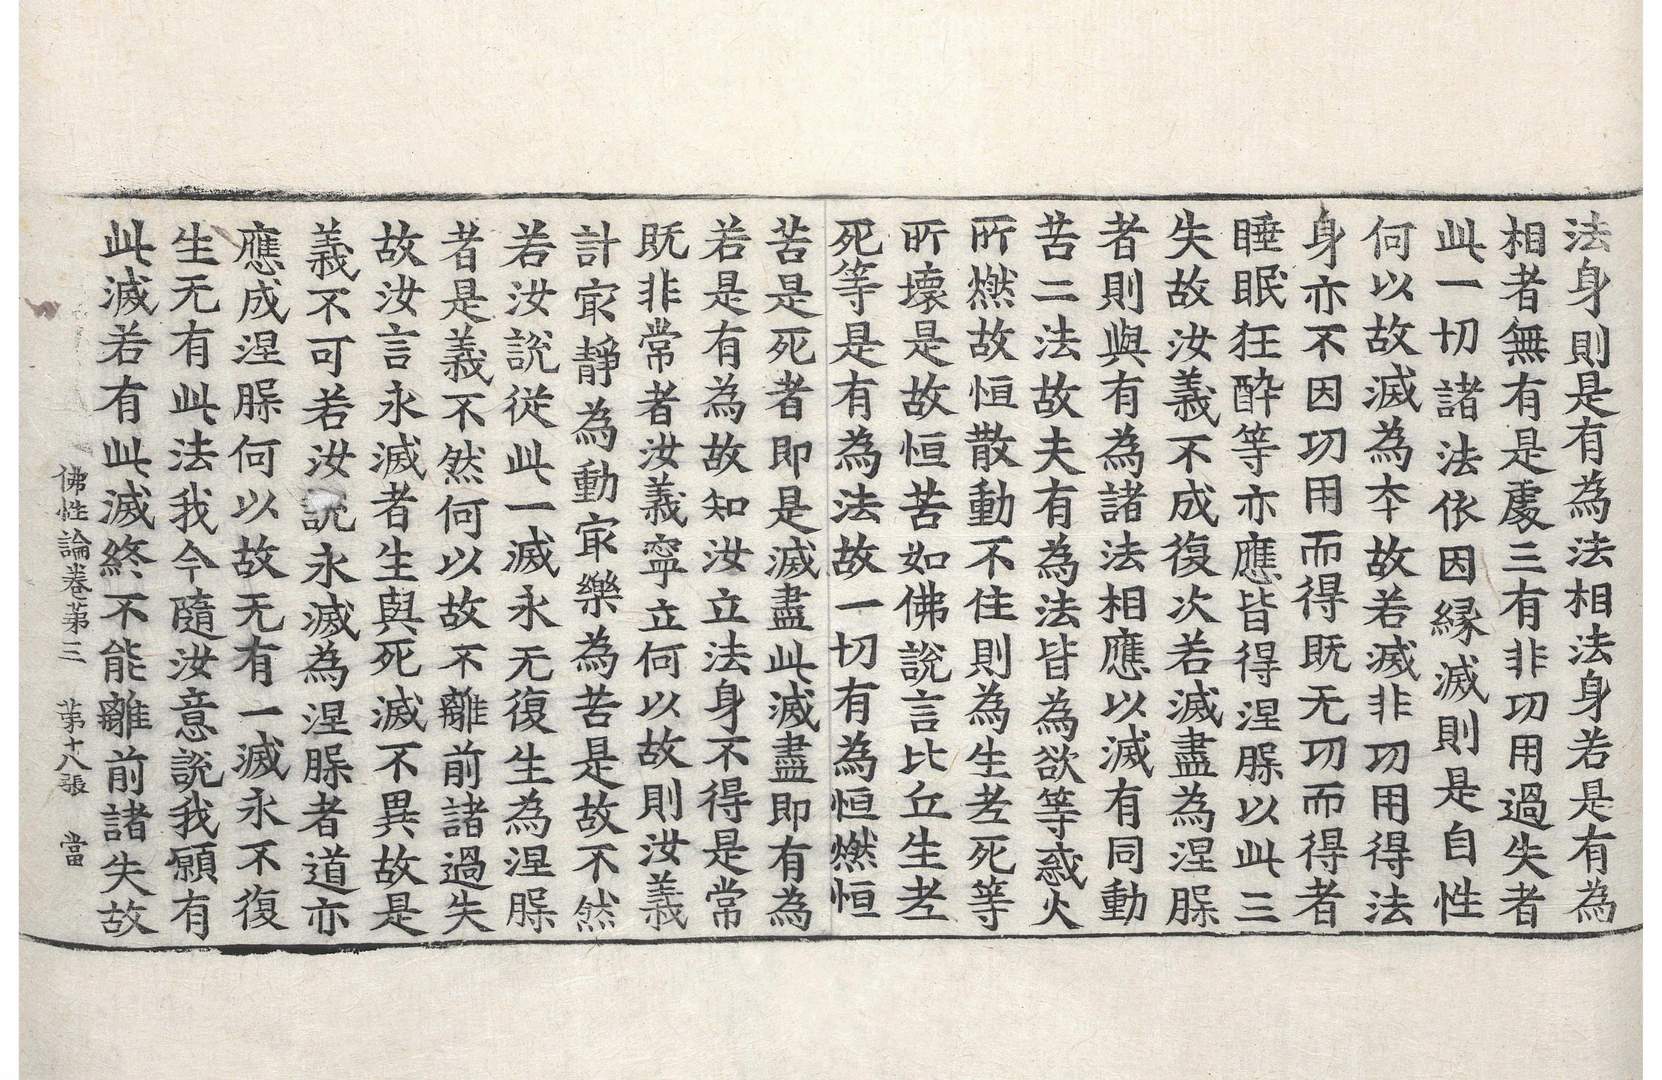 法身則是有為法相法身若是有為
相者無有是處三有非功用過失者
此一切諸法依因緣滅則是自性
何以故滅為本故若滅非功用得法
身亦不因功用而得既无功而得者
睡眠狂醉等亦應皆得涅槃以此三
失故汝義不成復次若滅盡為涅槃
者則與有為諸法相應以滅有同動
苦二法故夫有為法皆為欲等惑火
所燃故恒散動不住則為生老死等
所壞是故恒苦如佛說言比丘生老
死等是有為法故一切有為恒燃恒
苦是死者即是滅盡此滅盡即有為
若是有為故知汝立法身不得是常
既非常者汝義寧立何以故則汝義
計㝡靜為動㝡樂為苦是故不然
若汝說從此一滅永无復生為涅槃
者是義不然何以故不離前諸過失
故汝言永滅者生與死滅不異故是
義不可若汝說永滅為涅槃者道亦
應成涅槃何以故无有一滅永不復
生无有此法我今隨汝意說我願有
此滅若有此滅終不能離前諸失故
佛性論卷苐三　苐十八張　當